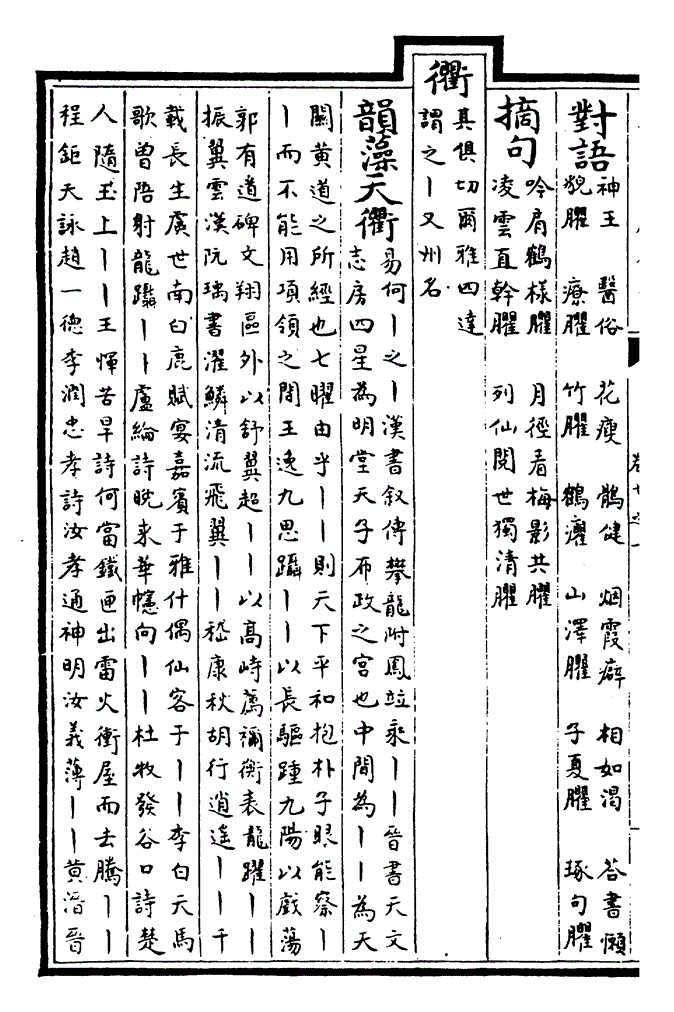 對語神王　醫俗　花瘦　鶻健　烟霞癖　相如渴　答書懶
貌臞　療臞　竹臞　鶴癯　山澤臞　子夏臞　琢句臞
摘句吟肩鶴樣臞　月徑看梅影共臞
凌雲直幹臞　列仙閱世獨清臞
衢其俱切爾雅四達
謂之丨又州名
韻藻天衢易何丨之丨漢書叙傳攀龍附鳳竝乘丨丨晉書天文
志房四星為明堂天子布政之宮也中間為丨丨為天
關黄道之所經也七曜由乎丨丨則天下平和抱朴子眼能察丨
丨而不能用項領之間王逸九思躡丨丨以長驅踵九陽以戲蕩
郭有道碑文翔區外以舒翼超丨丨以高峙薦禰衡表龍躍丨丨
振翼雲漢阮瑀書濯鱗清流飛翼丨丨嵇康秋胡行逍遥丨丨千
載長生虞世南白鹿賦宴嘉賓于雅什偶仙客于丨丨李白天馬
歌曽陪射龍躡丨丨盧綸詩晚來華幰向丨丨杜牧發谷口詩楚
人隨玉上丨丨王惲苦旱詩何當鐵匣出雷火衝屋而去騰丨丨
程鉅夫詠趙一徳李潤忠孝詩汝孝通神明汝義薄丨丨黄溍晉